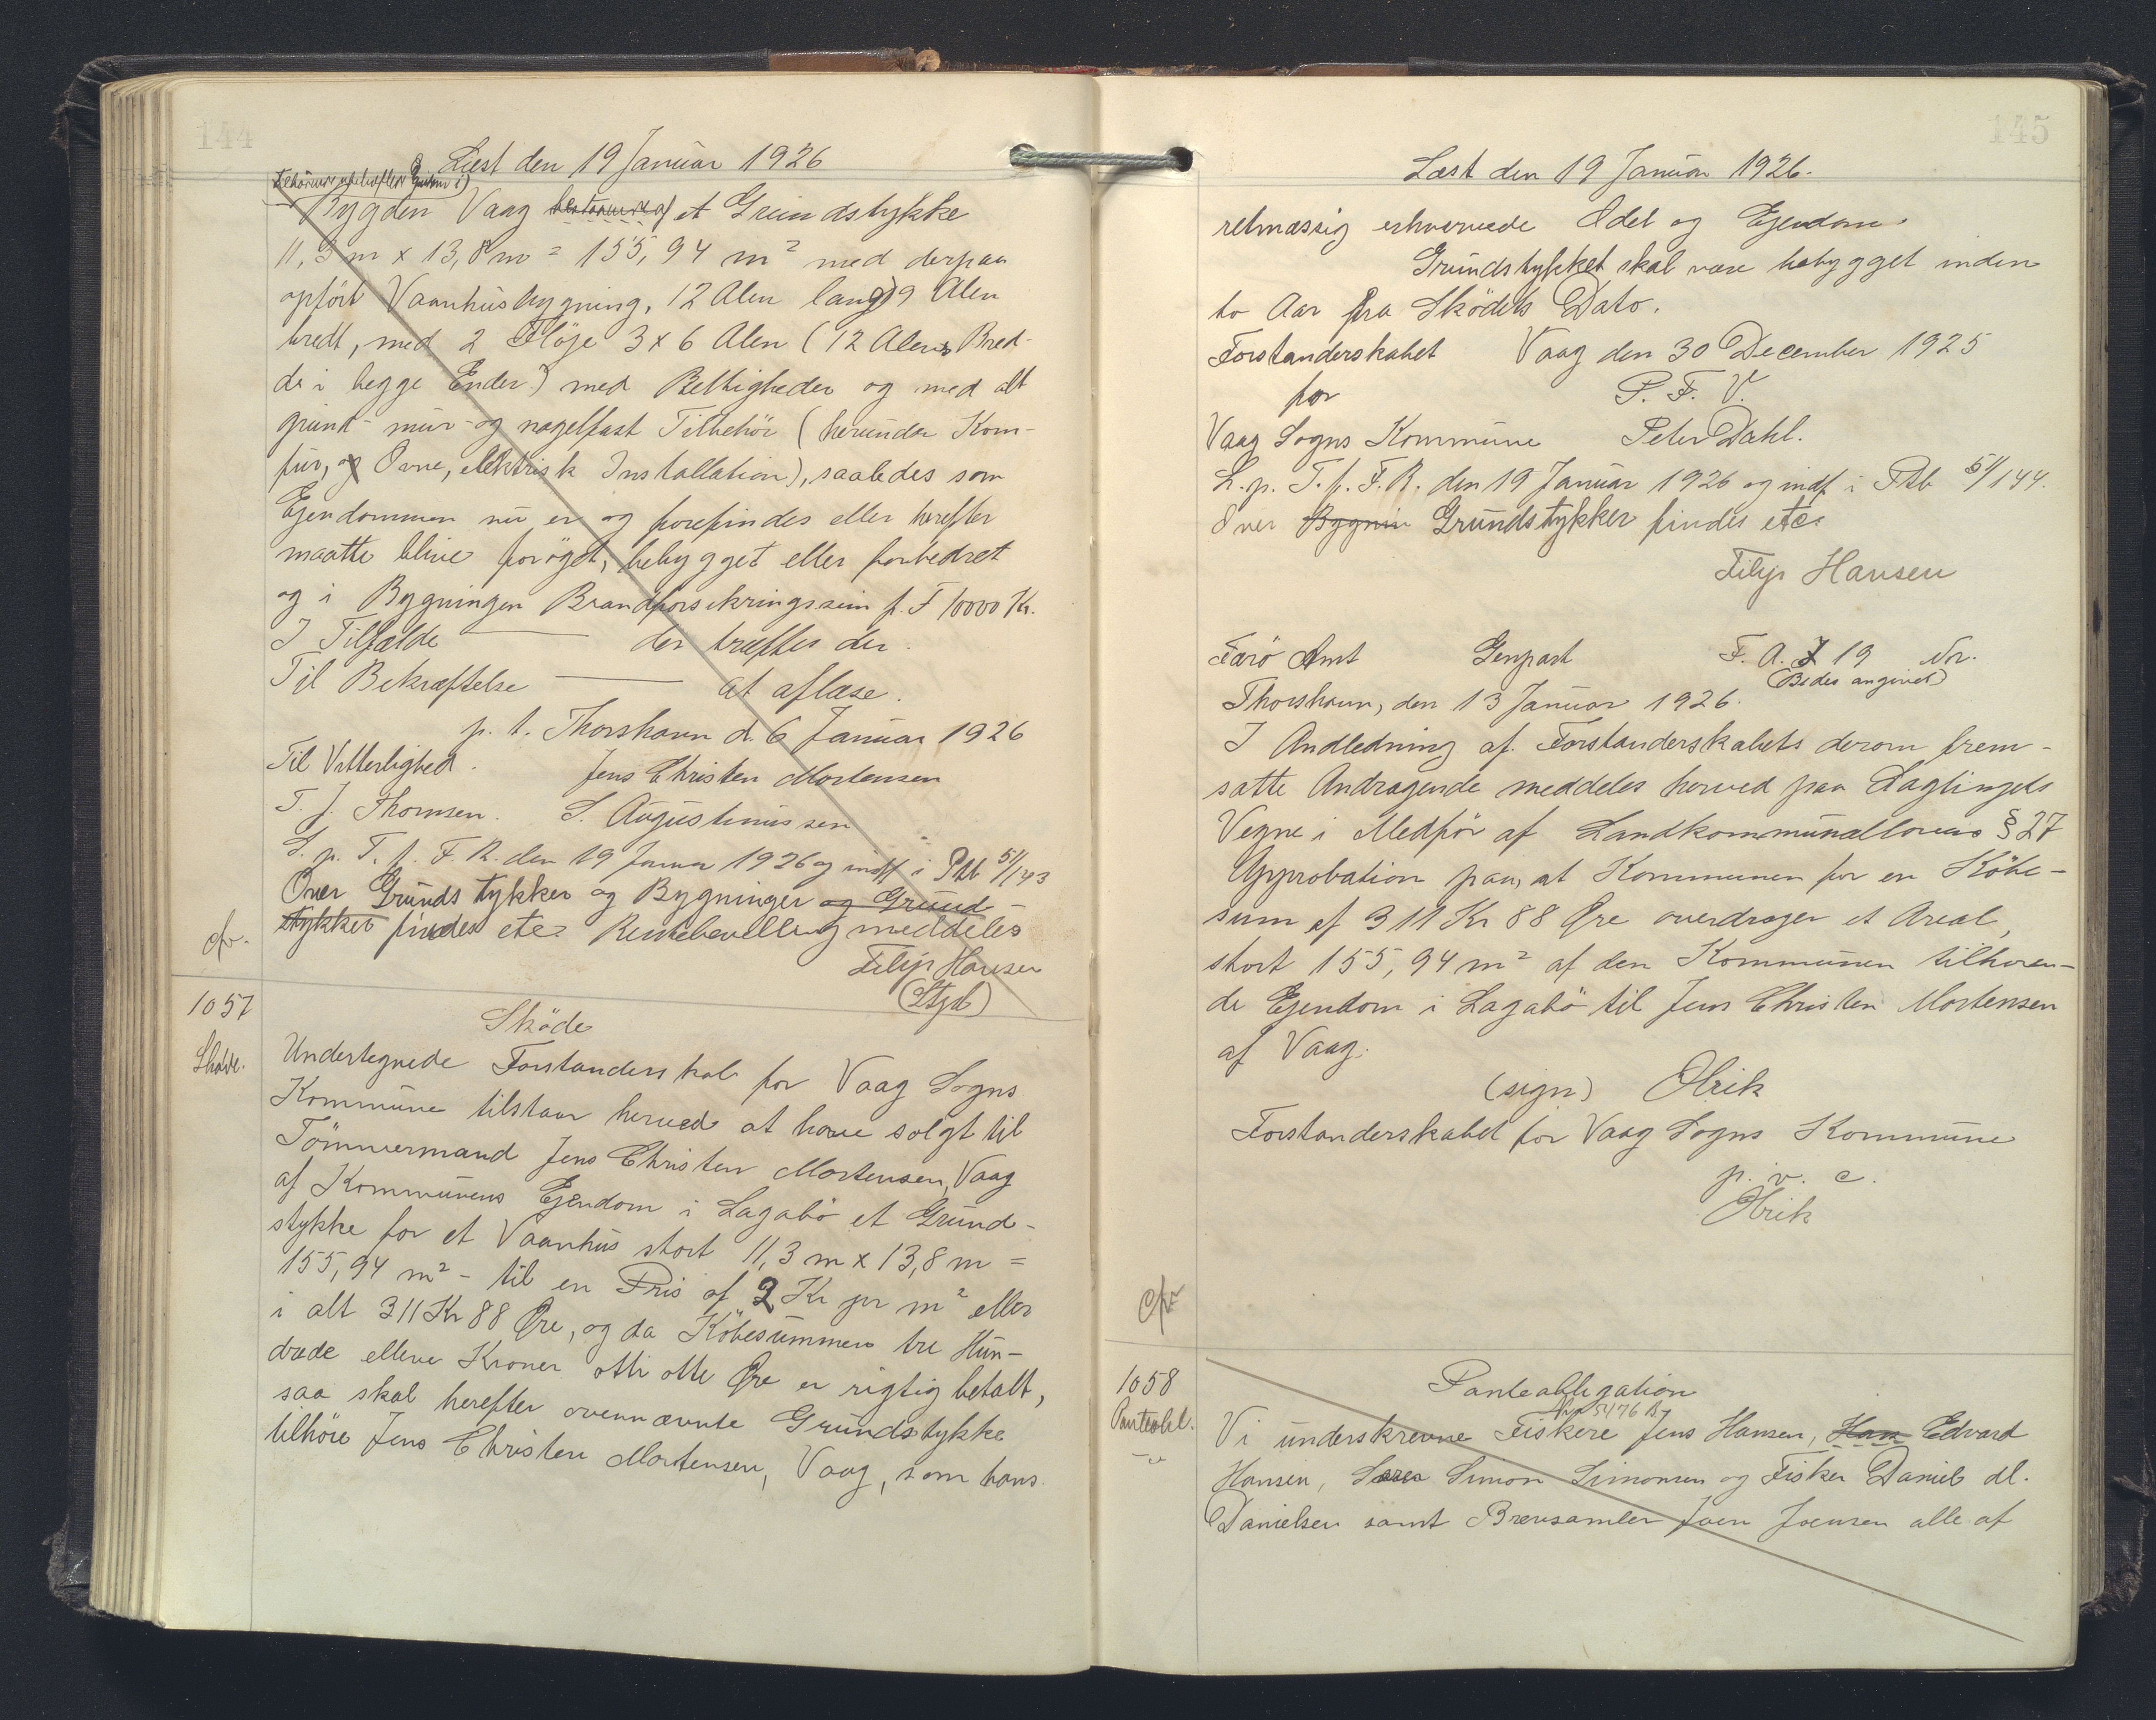 144
Læst den 19 Januar 1926
Bygden Vaag bestaaende af et Grundstykke
11,3 m x 13,8 m = 155,94 m² med derpaa
opført Vaanhusbygning, 12 Alen lang, 9 Alen
bredt, med 2 Fløje 3 x 6 Alen (12 Alens Bred-
de i begge Ender) med Rettigheder og med alt
grund- mur- og nagelfast Tilbehör (herunder Kom-
fur, og Ovne, elektrisk Installation), saaledes som
Ejendommen nu er og forefindes eller herefter
maatte blive forøget, bebygget eller forbedret
og i Bygningen Brandforsikringssum p. t. 10000 Kr.
I Tilfælde ——— der træffes der.
Til Bekræftelse ——— at aflæse.
p. t. Thorshavn d. 6 Januar 1926
Til Vitterlighed. Jens Christen Mortensen
T. J. Thomsen. S. Augustinussen
L. p. T. f. F. R. den 19 Januar 1926 og indf i Ptb 51/143
Over Grundstykker og Bygninger og Grund-
stykker findes etc. Rentebevelling meddeles
cfr.
Filip Hansen
1057
Sköde
Sköde.
Undertegnede Forstanderskab for Vaag Sogns
Kommune tilstaar herved at have solgt til
Tömmermand Jens Christen Mortensen, Vaag
af Kommunens Ejendom i Lagabö et Grund-
stykke for et Vaanhus stort 11,3 m x 13,8 m =
155,94 m² - til en Pris af 2 Kr pr m² eller
i alt 311 Kr 88 Øre, og da Köbesummen tre Hun-
drede elleve Kroner otti otte Øre er rigtig betalt,
saa skal herefter ovennævnte Grundstykke
tilhöre Jens Christen Mortensen, Vaag, som hans
145
Læst den 19 Januar 1926.
retmæssig erhvervede Odel og Ejendom
Grundstykket skal være bebygget inden
to Aar fra Skødets Dato.
Forstanderskabet Vaag den 30 December 1925
for P. F. V.
Vaag Sogns Kommune Peter Dahl.
L. p. T. f. F. R. den 19 Januar 1926 og indf i Ptb 51/144.
Over Bygnin Grundstykker findes etc.
Filip Hansen
Færö Amt Genpart F. A. J 19 Nr.
(Bedes angivet)
Thorshavn, den 13 Januar 1926.
I Andledning af Forstanderskabets derom frem-
satte Andragende meddeles herved paa Lagtingets
Vegne i Medför af Landkommunallovens § 27
Approbation paa, at Kommunen for en Köbe-
sum af 311 Kr 88 Øre overdrager et Areal,
stort 155,94 m² af den Kommunen tilhøren-
de Ejendom i Lagabö til Jens Christen Mortensen
af Vaag.
(sign) Olrik
Forstanderskabet for Vaag Sogns Kommune
p. v. c.
Olrik
cfr
1058
Panteobligation
Panteobl.
Vi underskrevne Fiskere Jens Hansen, Hans Edvard
Hansen, Simon Simonsen og Fisker Daniel
Danielsen samt Brevsamler Joen Joensen alle af